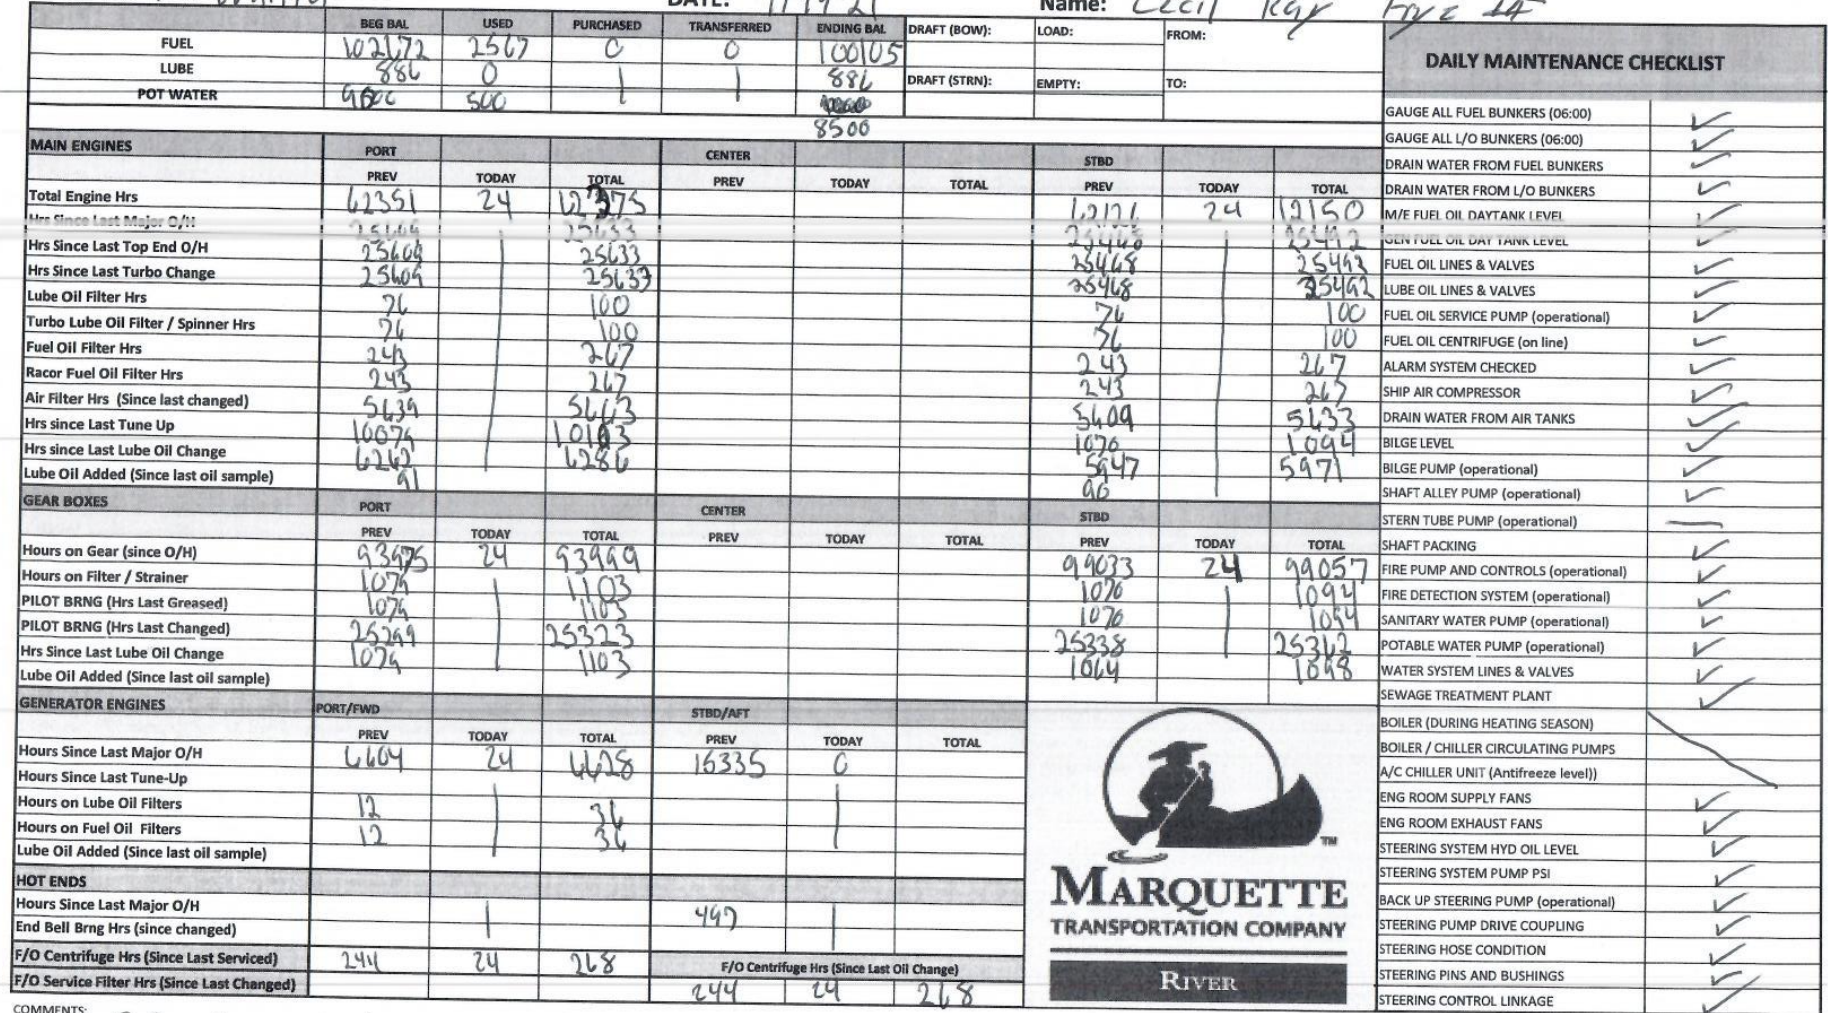 DATE: Name: Cecil Ray
BEG BAL USED PURCHASED TRANSFERRED ENDING BAL DRAFT (BOW): LOAD: FROM:
FUEL 102672 2567 0 0 100105
LUBE 886 0 886 DRAFT (STRN): EMPTY: TO:
POT WATER 500
8500
MAIN ENGINES PORT CENTER STBD
PREV TODAY TOTAL PREV TODAY TOTAL PREV TODAY TOTAL
Total Engine Hrs 62351 24 62375 62126 24 62150
Hrs Since Last Major O/H 25609 25633 25468 25492
Hrs Since Last Top End O/H 25609 25633 25468 25492
Hrs Since Last Turbo Change 25609 25633 25468 25492
Lube Oil Filter Hrs 76 100 76 100
Turbo Lube Oil Filter / Spinner Hrs 76 100 76 100
Fuel Oil Filter Hrs 243 267 243 267
Racor Fuel Oil Filter Hrs 243 267 243 267
Air Filter Hrs (Since last changed) 5639 5663 5609 5633
Hrs since Last Tune Up 10079 10103 1070 1094
Hrs since Last Lube Oil Change 6262 6286 5947 5971
Lube Oil Added (Since last oil sample) 91 90
GEAR BOXES PORT CENTER STBD
PREV TODAY TOTAL PREV TODAY TOTAL PREV TODAY TOTAL
Hours on Gear (since O/H) 93975 24 93999 99033 24 99057
Hours on Filter / Strainer 1079 1103 1070 1094
PILOT BRNG (Hrs Last Greased) 1079 1103 1070 1094
PILOT BRNG (Hrs Last Changed) 25299 25323 25338 25362
Hrs Since Last Lube Oil Change 1079 1103 1098
Lube Oil Added (Since last oil sample)
GENERATOR ENGINES PORT/FWD STBD/AFT
PREV TODAY TOTAL PREV TODAY TOTAL
Hours Since Last Major O/H 6604 24 6628 16335 0
Hours Since Last Tune-Up
Hours on Lube Oil Filters 12 36
Hours on Fuel Oil Filters 12 36
Lube Oil Added (Since last oil sample)
HOT ENDS
Hours Since Last Major O/H 497
End Bell Brng Hrs (since changed)
F/O Centrifuge Hrs (Since Last Serviced) 244 24 268 F/O Centrifuge Hrs (Since Last Oil Change)
F/O Service Filter Hrs (Since Last Changed) 244 24 268
COMMENTS:
TM
MARQUETTE
TRANSPORTATION COMPANY
RIVER
DAILY MAINTENANCE CHECKLIST
GAUGE ALL FUEL BUNKERS (06:00)
GAUGE ALL L/O BUNKERS (06:00)
DRAIN WATER FROM FUEL BUNKERS
DRAIN WATER FROM L/O BUNKERS
M/E FUEL OIL DAYTANK LEVEL
GEN FUEL OIL DAY TANK LEVEL
FUEL OIL LINES & VALVES
LUBE OIL LINES & VALVES
FUEL OIL SERVICE PUMP (operational)
FUEL OIL CENTRIFUGE (on line)
ALARM SYSTEM CHECKED
SHIP AIR COMPRESSOR
DRAIN WATER FROM AIR TANKS
BILGE LEVEL
BILGE PUMP (operational)
SHAFT ALLEY PUMP (operational)
STERN TUBE PUMP (operational)
SHAFT PACKING
FIRE PUMP AND CONTROLS (operational)
FIRE DETECTION SYSTEM (operational)
SANITARY WATER PUMP (operational)
POTABLE WATER PUMP (operational)
WATER SYSTEM LINES & VALVES
SEWAGE TREATMENT PLANT
BOILER (DURING HEATING SEASON)
BOILER / CHILLER CIRCULATING PUMPS
A/C CHILLER UNIT (Antifreeze level))
ENG ROOM SUPPLY FANS
ENG ROOM EXHAUST FANS
STEERING SYSTEM HYD OIL LEVEL
STEERING SYSTEM PUMP PSI
BACK UP STEERING PUMP (operational)
STEERING PUMP DRIVE COUPLING
STEERING HOSE CONDITION
STEERING PINS AND BUSHINGS
STEERING CONTROL LINKAGE